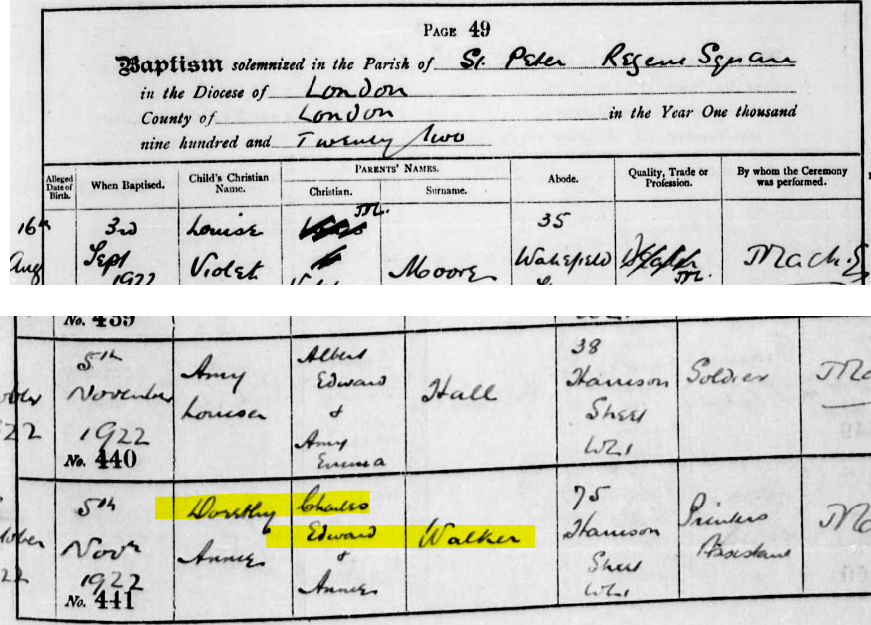 PAGE 49
Baptism solemnized in the Parish of St. Peter Regent Square
in the Diocese of London
County of London in the Year One thousand
nine hundred and Twenty two
Alleged Date of Birth.
When Baptised.
Child's Christian Name.
PARENTS' NAMES.
Christian.
Surname.
Abode.
Quality, Trade or Profession.
By whom the Ceremony was performed.
M.
16th 3rd Louise 35
Aug Sept Violet Moore Wakefield M.
1922
No. 439
5th Amy Albert 38
November Louisa Edward Hall Harrison Soldier
22 1922 & Street
No. 440 Amy WC1
Emma
5th Dorothy Charles 75 Printers
Novr Annie Edward Walker Harrison Assistant
22 1922 & Street
No. 441 Annie WC1